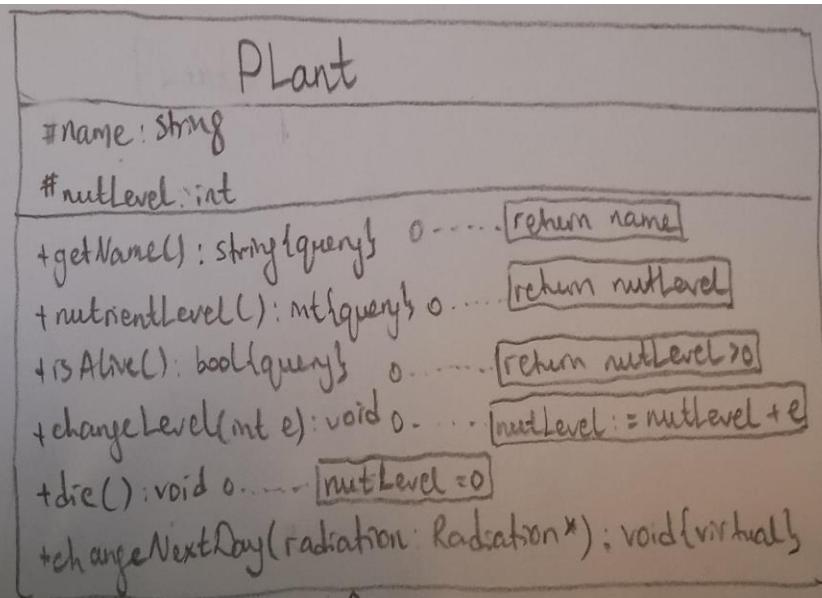 PLant
#name: string
#nutLevel: int
+getName(): string{query} o...... return name
+nutrientLevel(): int{query} o...... return nutLevel
+isAlive(): bool{query} o........ return nutLevel>0
+changeLevel(int e): void o...... nutLevel := nutLevel + e
+die(): void o....... nutLevel =0
+changeNextDay(radiation: Radiation*): void{virtual}